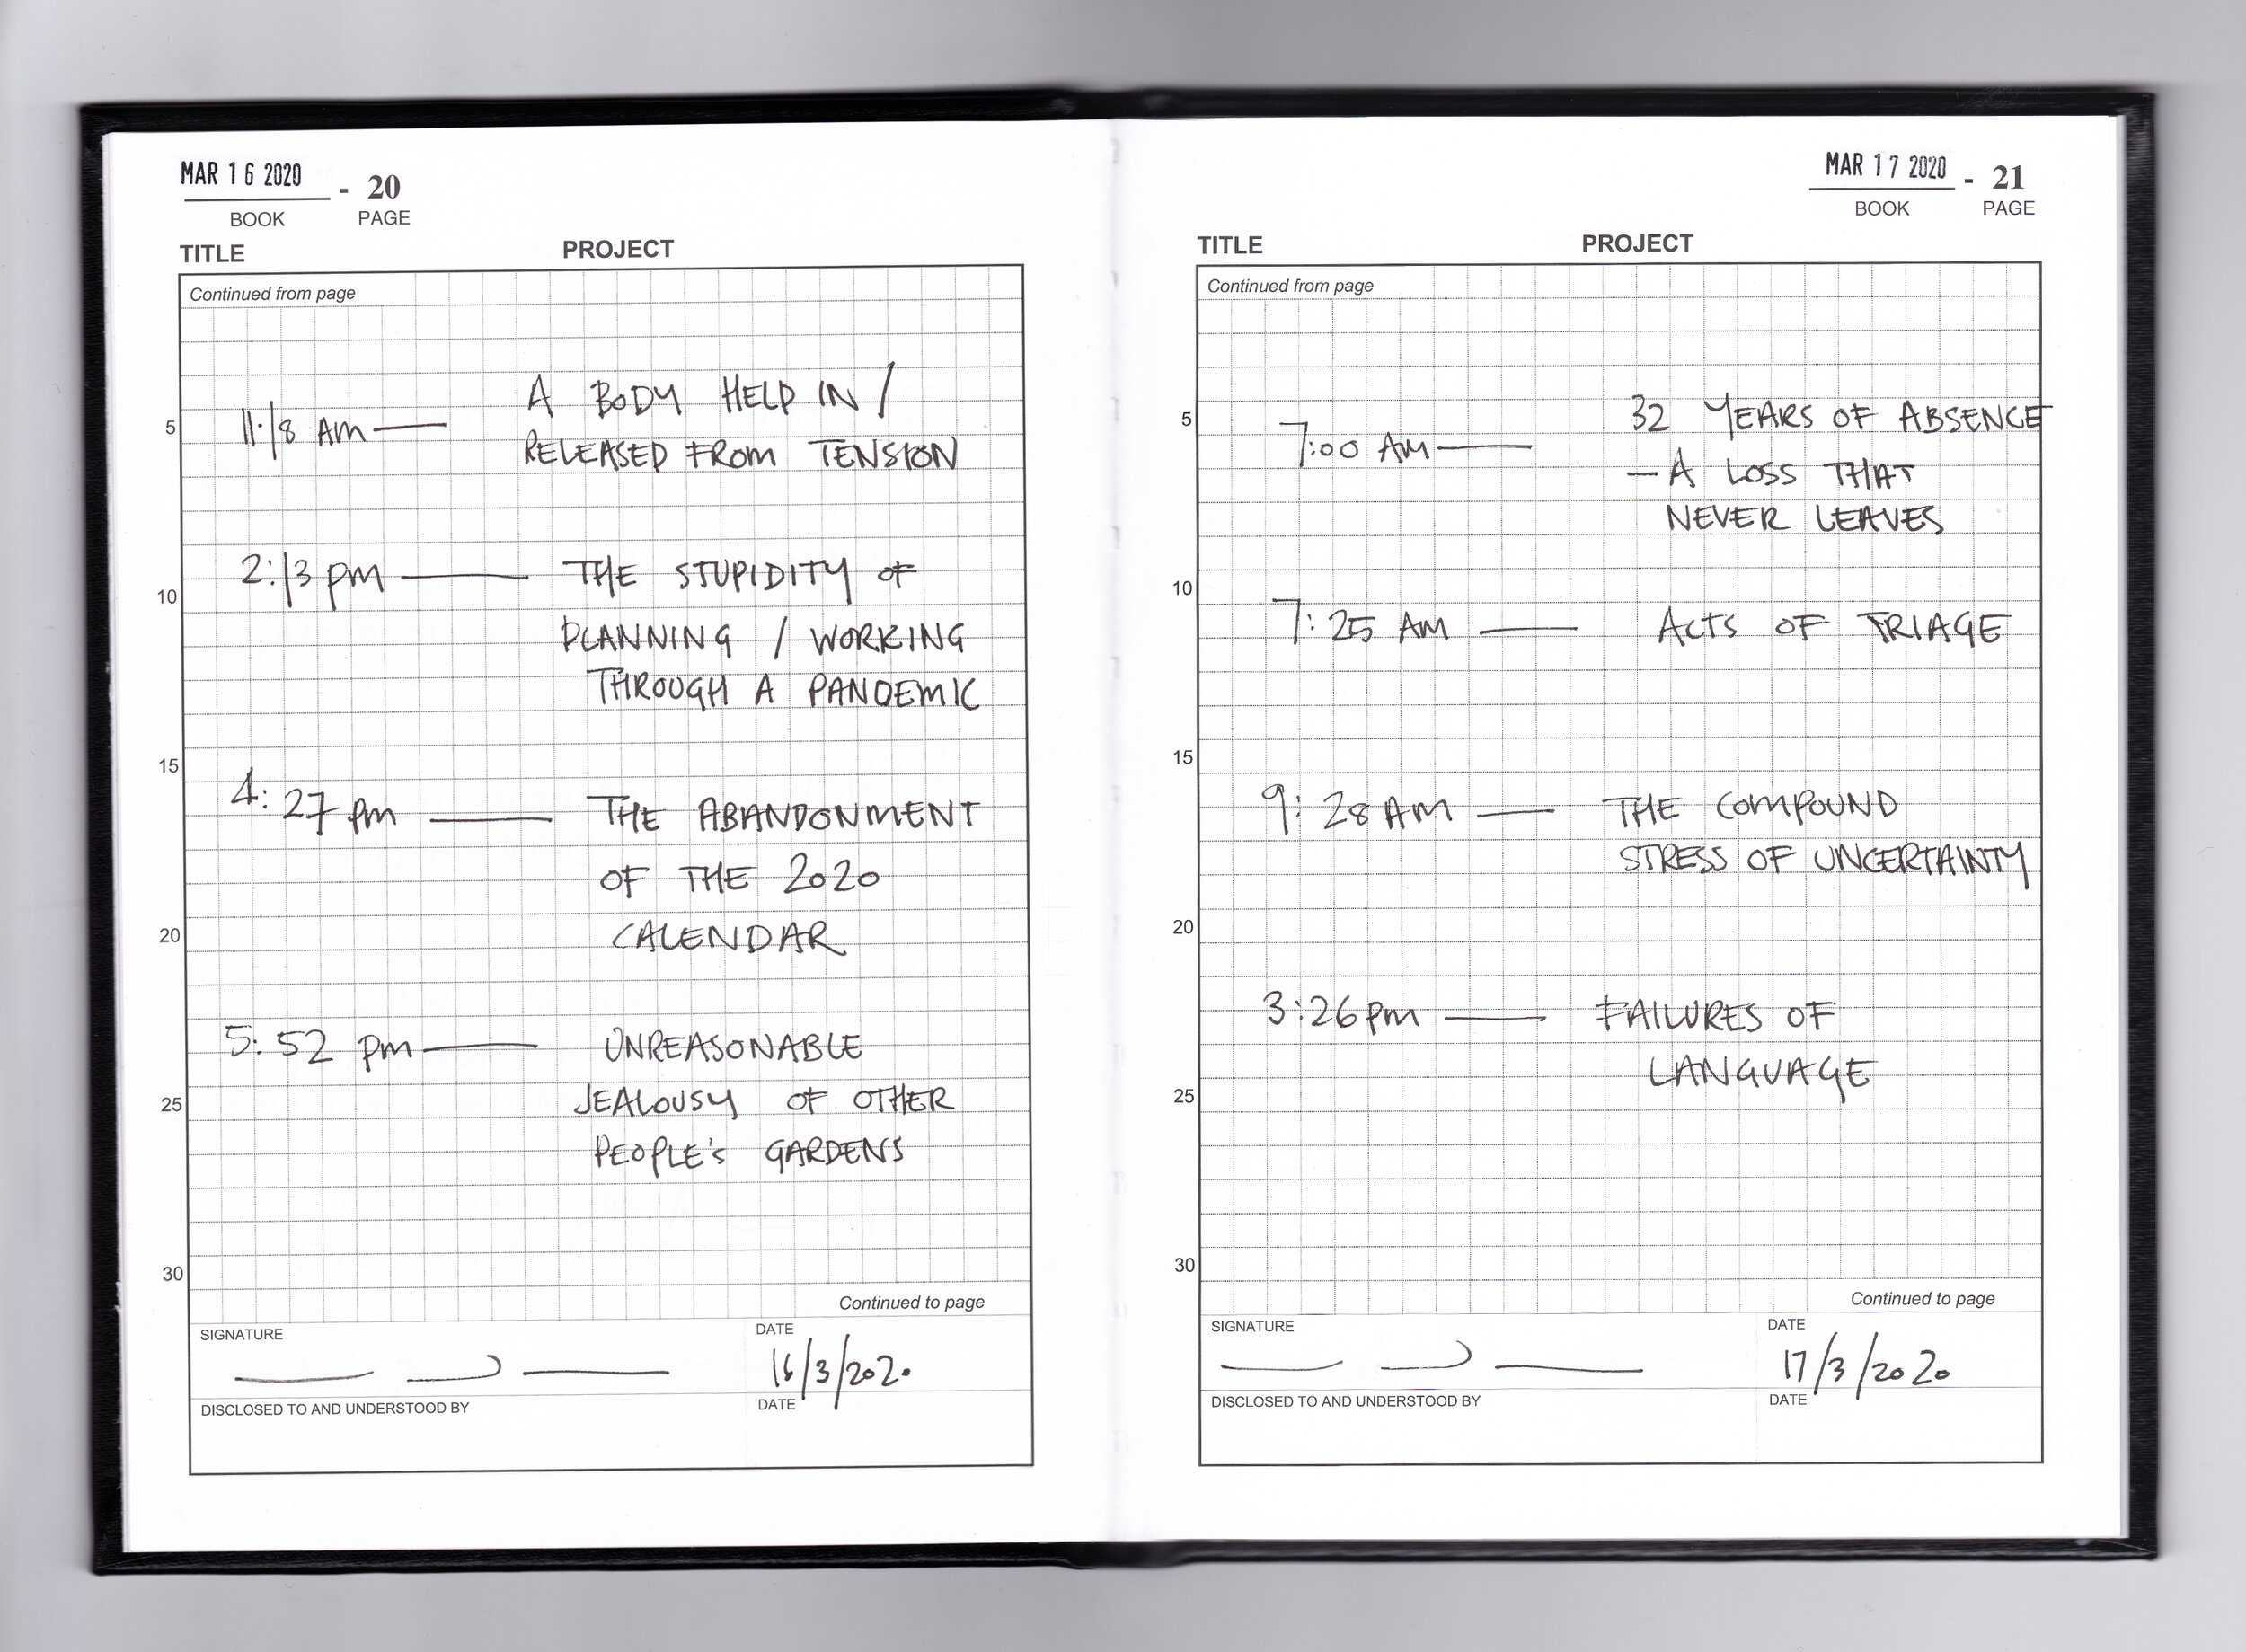 MAR 16 2020 - 20
BOOK PAGE
TITLE PROJECT
Continued from page
5
11:18 AM — A BODY HELP IN /
RELEASED FROM TENSION
2:13 pm — THE STUPIDITY OF
10
PLANNING / WORKING
THROUGH A PANDEMIC
15
4:27 pm — THE ABANDONMENT
OF THE 2020
20
CALENDAR
5:52 pm — UNREASONABLE
25
JEALOUSY OF OTHER
PEOPLE'S GARDENS
30
Continued to page
SIGNATURE DATE
16/3/2020
DISCLOSED TO AND UNDERSTOOD BY DATE
MAR 17 2020 - 21
BOOK PAGE
TITLE PROJECT
Continued from page
5
7:00 AM — 32 YEARS OF ABSENCE
— A LOSS THAT
NEVER LEAVES
10
7:25 AM — ACTS OF TRIAGE
15
9:28 AM — THE COMPOUND
STRESS OF UNCERTAINTY
20
3:26 pm — FAILURES OF
LANGUAGE
25
30
Continued to page
SIGNATURE DATE
17/3/2020
DISCLOSED TO AND UNDERSTOOD BY DATE